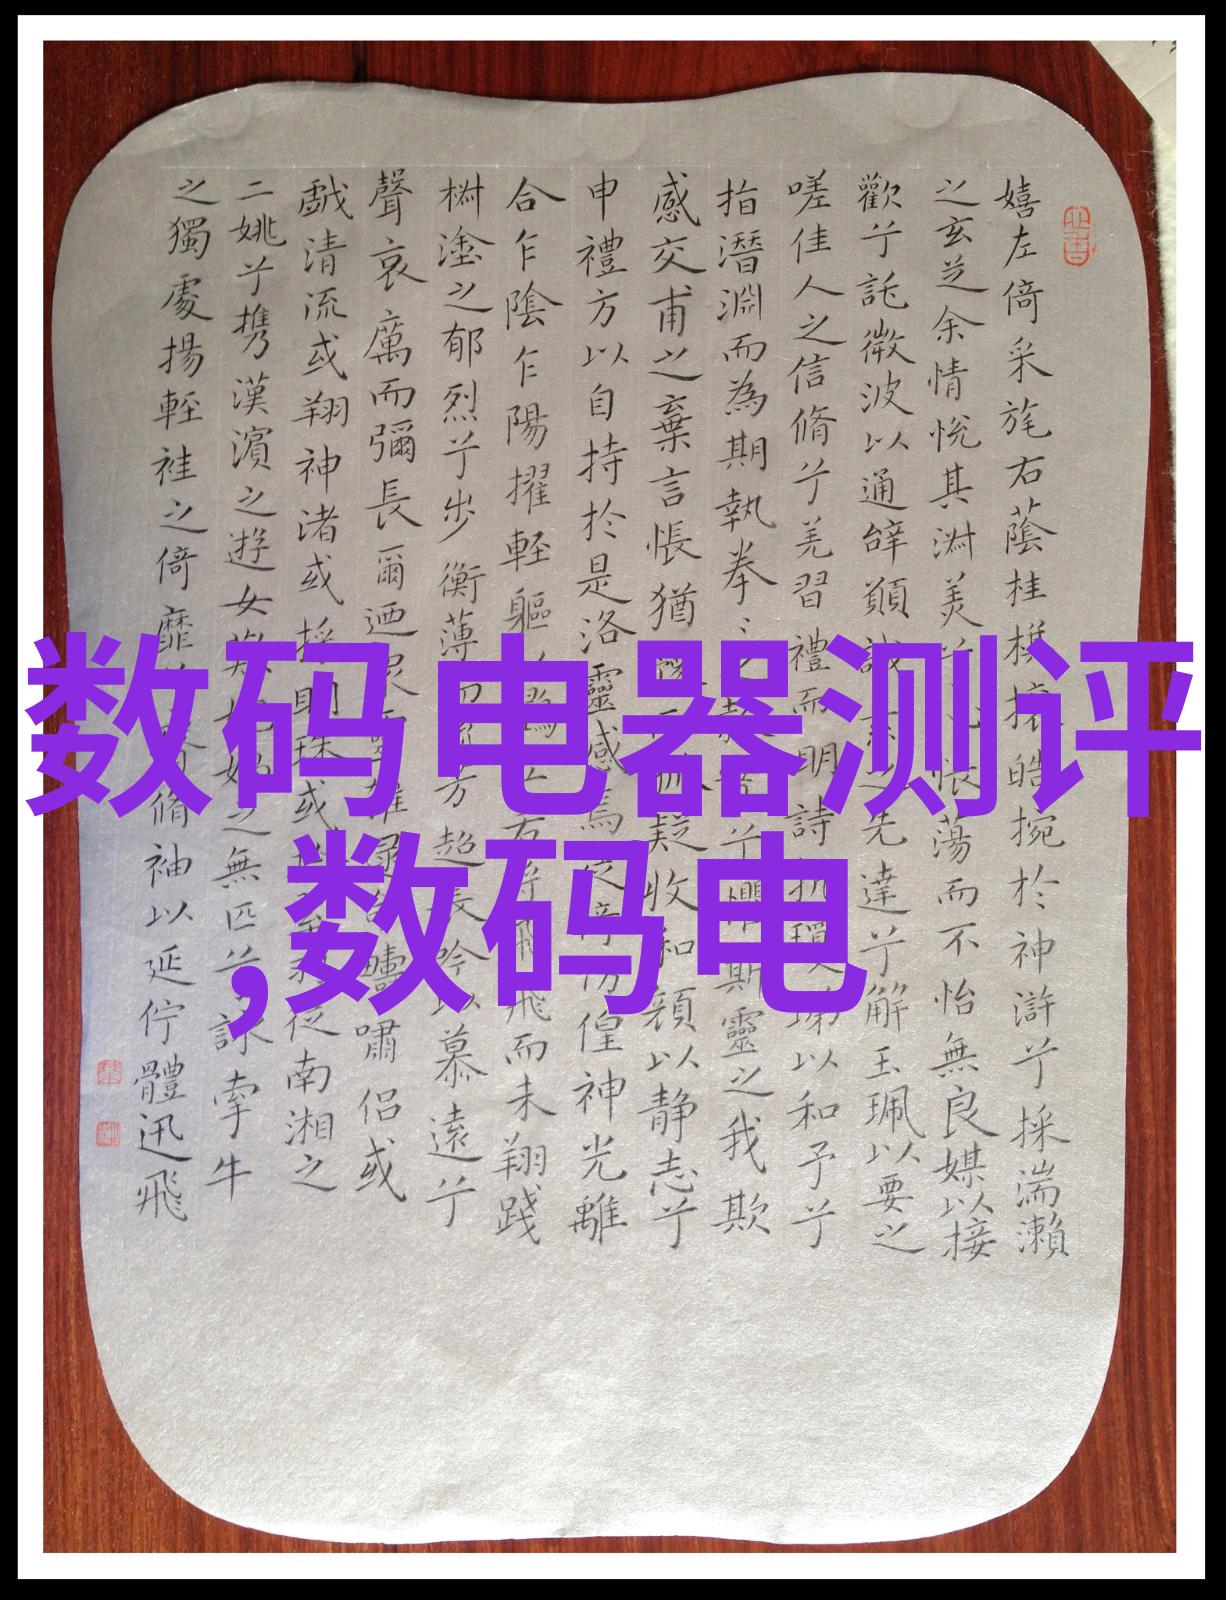 数码电器测评
,数码电
嬉左倚采旄右蔭桂攘皓捥於神滸兮採湍瀨
之玄芝余情悅其淑美兮心悵蕩而不怡無良媒以接
歡兮託微波以通辭願誠之先達兮解玉珮以要之
嗟佳人之信脩兮羌習禮而明詩抗瓊以和予兮
指潛淵而為期執拳兮懼斯靈之我欺
感交甫之棄言悵猶疑收和顏以静志兮
申禮方以自持於是洛靈感焉徨神光離
合乍陰乍陽擢輕軀若將飛而未翔踐
樹塗之郁烈兮步衡薄芳超長吟以慕遠兮
聲哀厲而彌長爾迺眾嘯侶或
戲清流或翔神渚或採明珠或從南湘之
二姚兮攜漢濱之遊女之無匹兮詠牽牛
之獨處揚輕袿之倚靡脩袖以延佇體迅飛